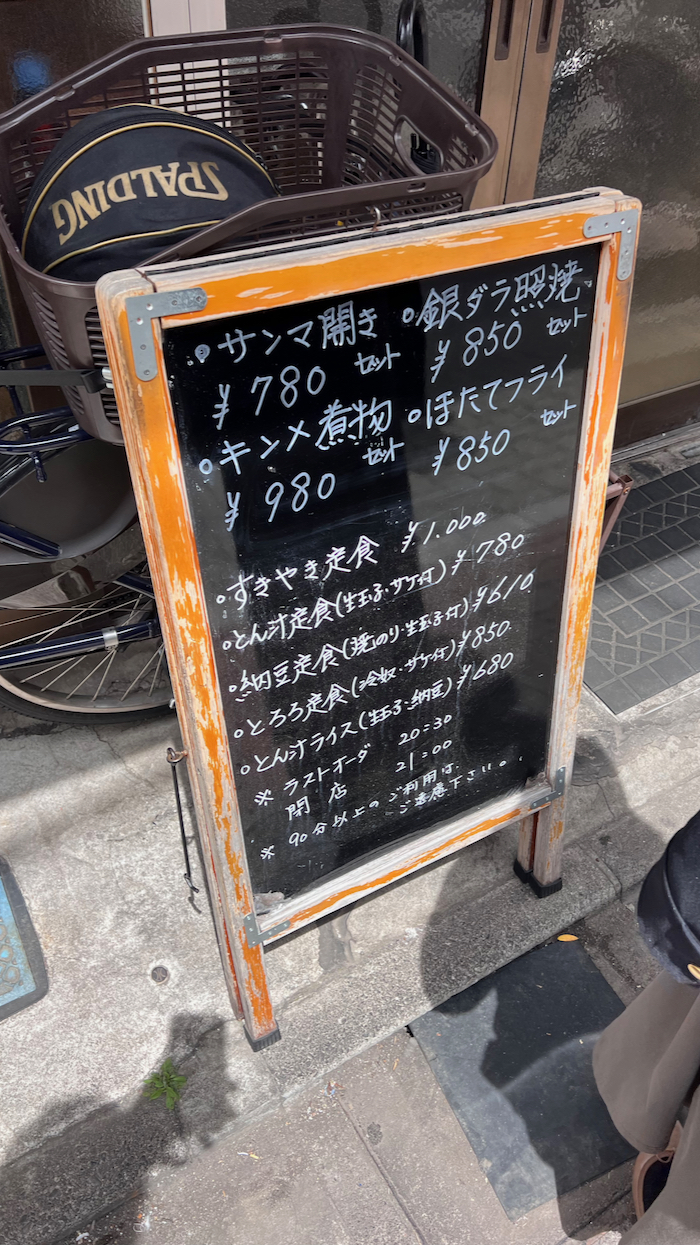 SPALDING
○サンマ開き
¥780 セット
○銀ダラ照焼
¥850 セット
○キンメ煮物
¥980 セット
○ほたてフライ
¥850 セット
○すきやき定食 ¥1.000
○とん汁定食(生玉子・サケ付) ¥780
○納豆定食(焼のり・生玉子付) ¥610
○とろろ定食(冷奴・サケ付) ¥850
○とん汁ライス(生玉子・納豆) ¥680
※ ラストオーダ 20:30
閉店 21:00
※ 90分以上のご利用は、
ご遠慮下さい。